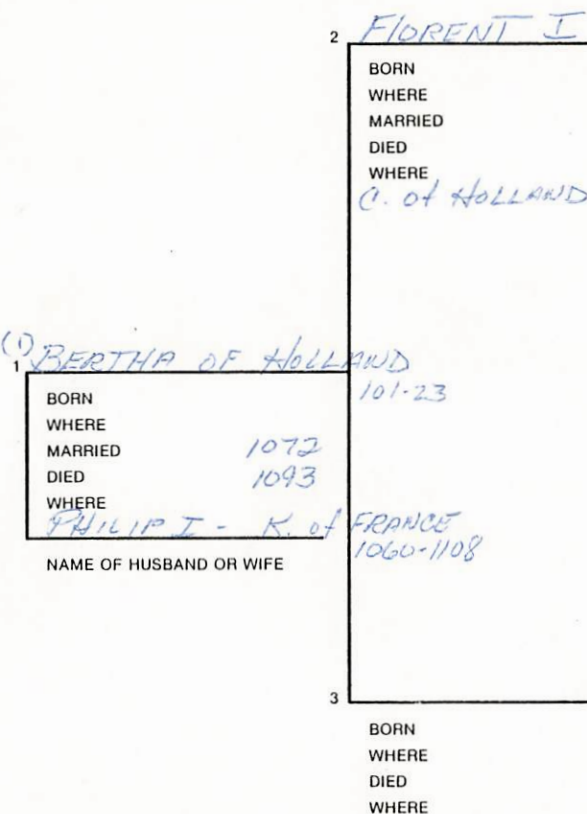 2 FLORENT I
BORN
WHERE
MARRIED
DIED
WHERE
C. of HOLLAND
(1)
1 BERTHA OF HOLLAND
101-23
BORN
WHERE
MARRIED 1072
DIED 1093
WHERE
PHILIP I - K. of FRANCE
1060-1108
NAME OF HUSBAND OR WIFE
3
BORN
WHERE
DIED
WHERE